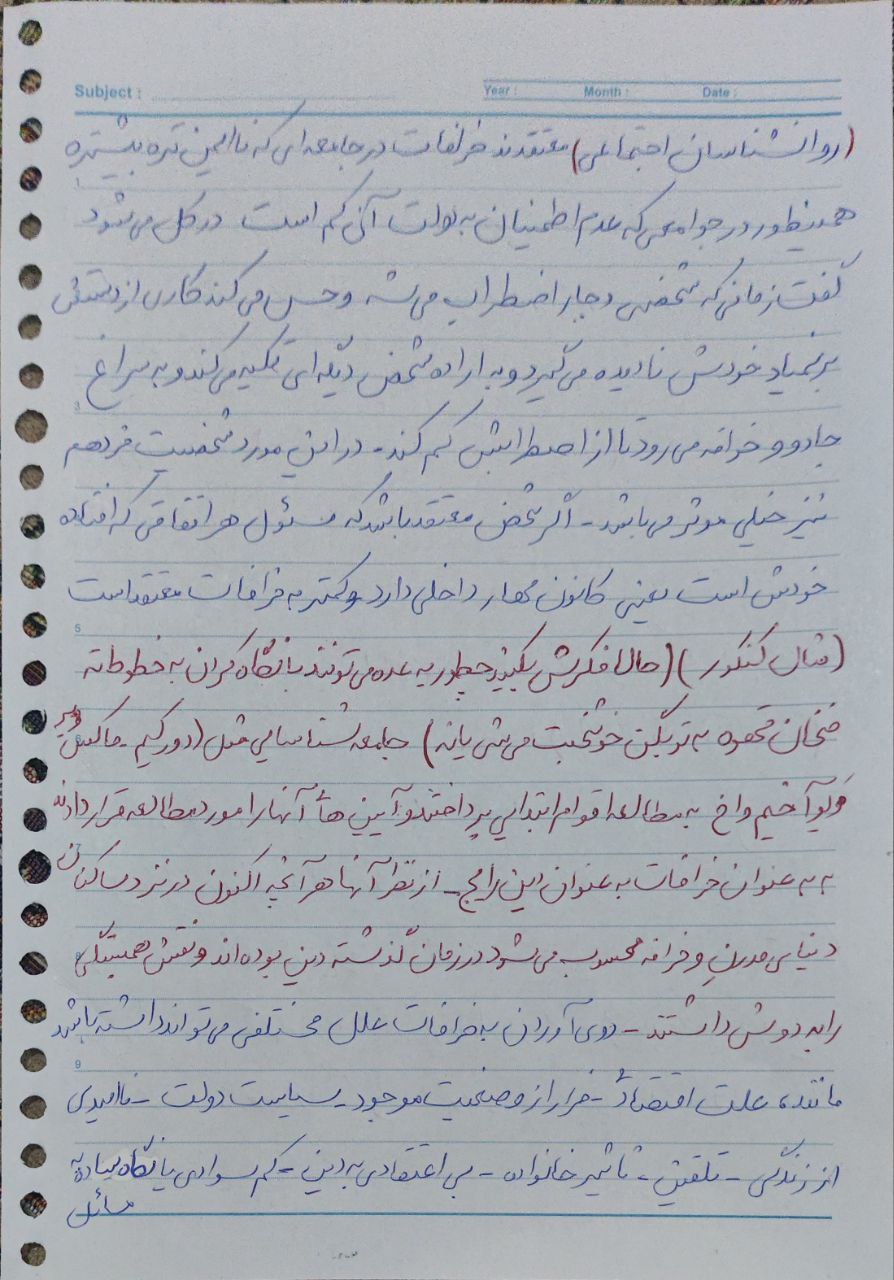 Subject :
Year :    Month :    Date :
(روانشناسان اجتماعی) معتقدند خرافات در جامعه ای که ناامن تره بیشتره
همینطور در جوامعی که عدم اطمینان به دولت آن کم است در کل می شود
گفت زمانی که شخصی دچار اضطراب می شه و حس می کند کاری از دستش
بر نمیاد خودش نادیده می گیرد و به اراده شخص دیگه ای تکیه می کند و به سراغ
جادو و خرافه می رود تا از اضطرابش کم کند - در این مورد شخصیت فرد هم
نیز خیلی موثر می باشد - اگر شخص معتقد باشد که مسئول هر اتفاقی که افتاده
خودش است یعنی کانون مهار داخلی دارد و کمتر به خرافات معتقد است
(مثال کنکور) (حالا فکرش بکنید چطور یه عده می تونند با نگاه کردن به خطوط ته
فنجان قهوه به تو بگن خوشبخت می شی یا نه) جامعه شناسایی مثل (دورکیم - ماکس وبر
و یوآخیم واخ به مطالعه اقوام ابتدایی پرداختند و آیین های آنها را مورد مطالعه قرار دادند
نه به عنوان خرافات به عنوان دین رایج - از نظر آنها هر آنچه اکنون در نزد ساکنان
دنیای مدرن و خرافه محسوب می شود در زمان گذشته دین بوده اند و نقش همبستگی
را به دوش داشتند - روی آوردن به خرافات علل مختلفی می تواند داشته باشد
مانند، علت اقتصادی - فرار از وضعیت موجود - سیاست دولت - ناامیدی
از زندگی - تلقین - تاثیر خانواده - بی اعتقادی به دین - کم سوادی یا نگاه ساده به
مسائل